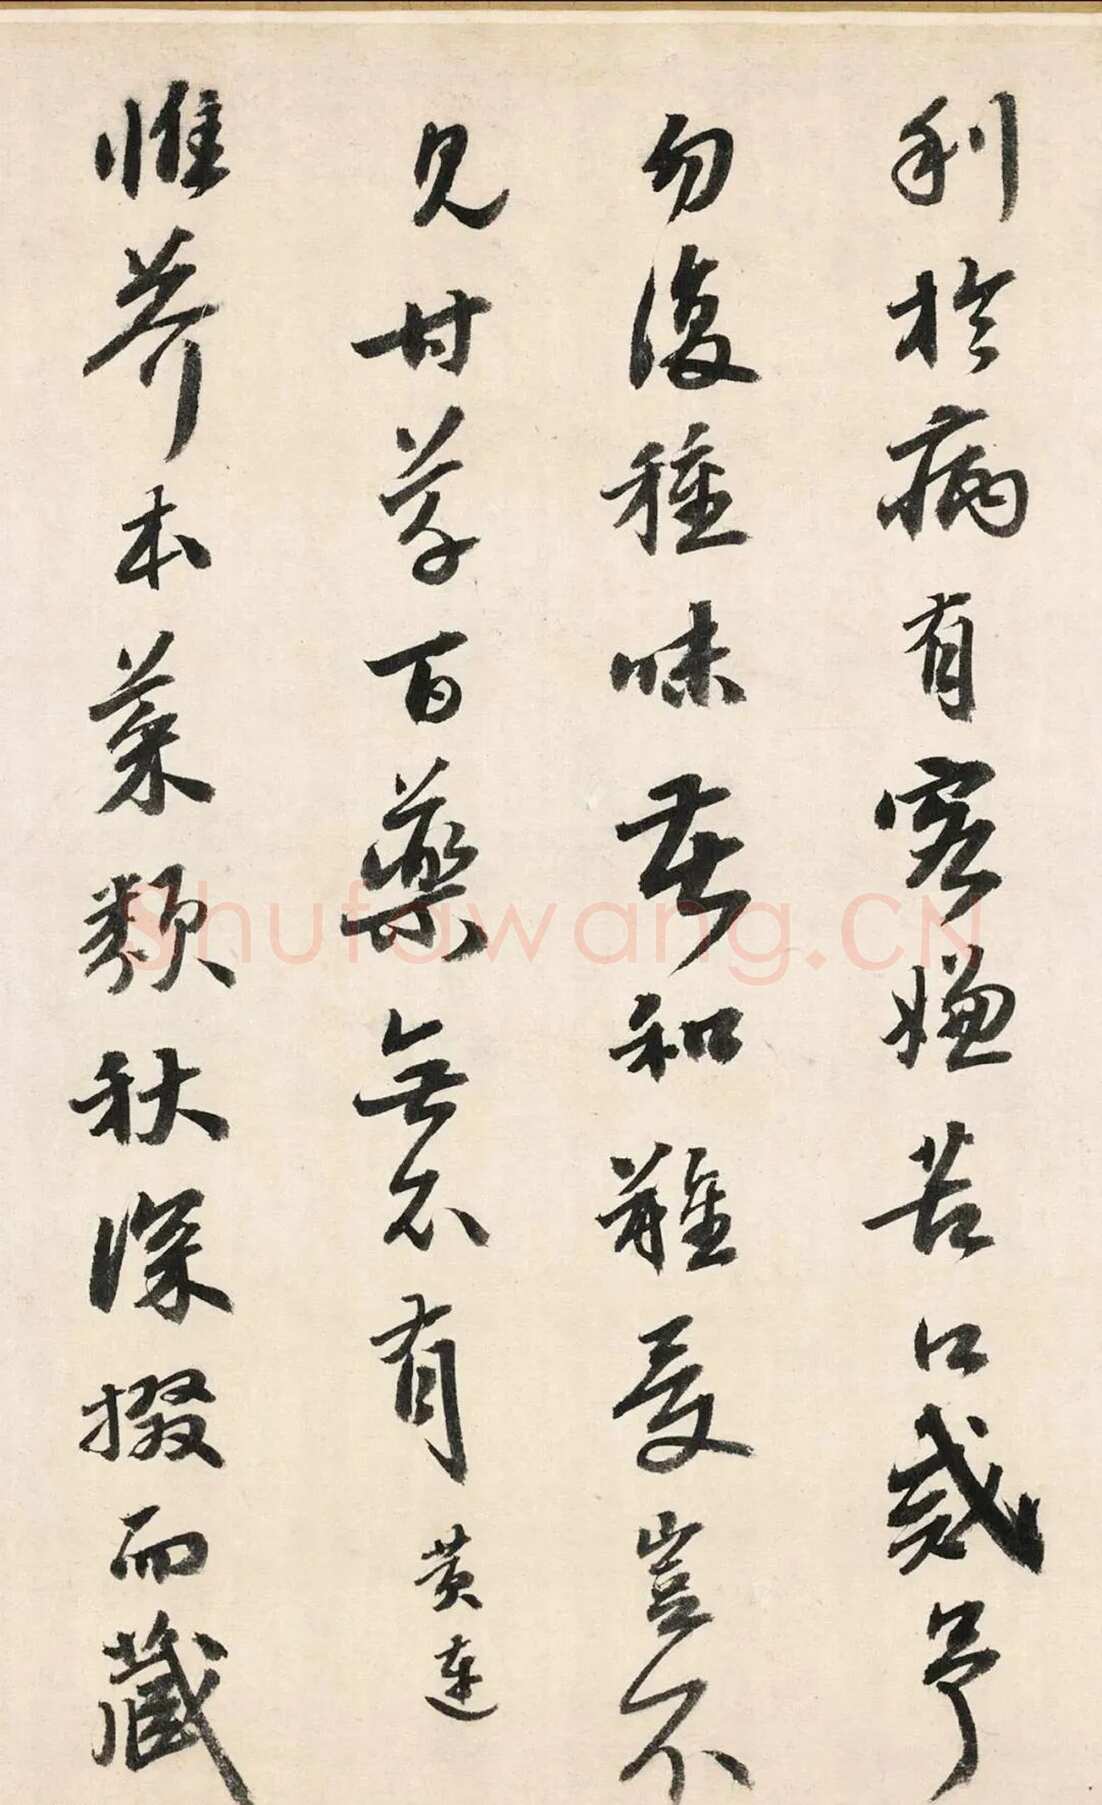 利於病有客嫌苦口戒予
勿復種味苦和難受豈不
見甘草百藥無不有 黃連
惟芥本菜類秋深掇而藏
Shufawang.CN